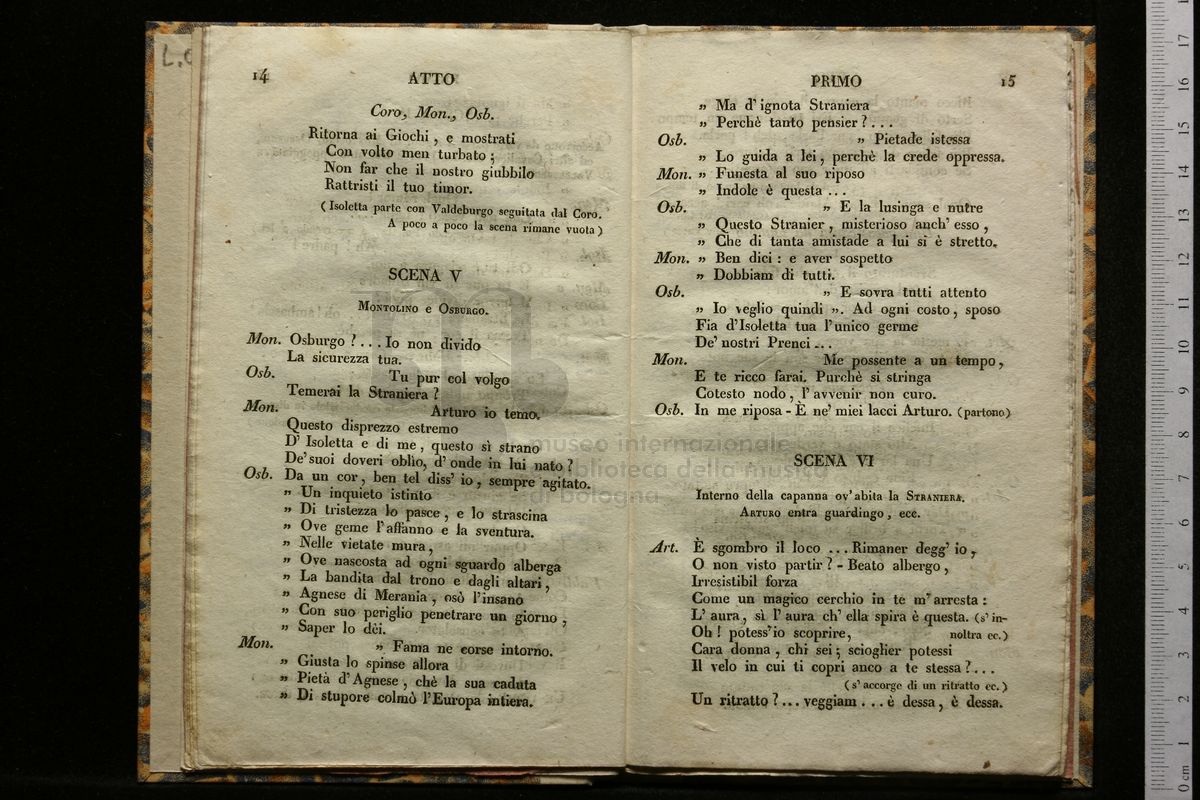 L.
14
ATTO
Coro, Mon., Osb.
Ritorna ai Giochi , e mostrati
Con volto men turbato ;
Non far che il nostro giubbilo
Rattristi il tuo timor.
( Isoletta parte con Valdeburgo seguitata dal Coro.
A poco a poco la scena rimane vuota )
SCENA V
MONTOLINO e OSBURGO.
Mon. Osburgo ? . . . Io non divido
La sicurezza tua.
Osb. Tu pur col volgo
Temerai la Straniera ?
Mon. Arturo io temo.
Questo disprezzo estremo
D' Isoletta e di me , questo sì strano
De' suoi doveri oblìo, d' onde in lui nato ?
Osb. Da un cor, ben tel diss' io , sempre agitato.
„ Un inquieto istinto
„ Di tristezza lo pasce , e lo strascina
„ Ove geme l'affanno e la sventura.
„ Nelle vietate mura ,
„ Ove nascosta ad ogni sguardo alberga
„ La bandita dal trono e dagli altari ,
„ Agnese di Merania , osò l'insano
„ Con suo periglio penetrare un giorno ,
„ Saper lo dèi.
Mon. „ Fama ne corse intorno.
„ Giusta lo spinse allora
„ Pietà d'Agnese , chè la sua caduta
„ Di stupore colmò l'Europa intiera.
PRIMO
15
„ Ma d' ignota Straniera
„ Perchè tanto pensier ? . . .
Osb. „ Pietade istessa
„ Lo guida a lei , perchè la crede oppressa.
Mon. „ Funesta al suo riposo
„ Indole è questa . . .
Osb. „ E la lusinga e nutre
„ Questo Stranier , misterioso anch' esso ,
„ Che di tanta amistade a lui si è stretto.
Mon. „ Ben dici : e aver sospetto
„ Dobbiam di tutti.
Osb. „ E sovra tutti attento
„ Io veglio quindi „. Ad ogni costo , sposo
Fia d'Isoletta tua l'unico germe
De' nostri Prenci . . .
Mon. Me possente a un tempo ,
E te ricco farai. Purchè si stringa
Cotesto nodo , l' avvenir non curo.
Osb. In me riposa - È ne' miei lacci Arturo. (partono)
SCENA VI
Interno della capanna ov' abita la STRANIERA.
ARTURO entra guardingo , ecc.
Art. È sgombro il loco . . . Rimaner degg' io ,
O non visto partir ? - Beato albergo ,
Irresistibil forza
Come un magico cerchio in te m' arresta :
L' aura , sì l' aura ch' ella spira è questa. (s' in-
Oh ! potess'io scoprire, noltra ec.)
Cara donna , chi sei ; scioglier potessi
Il velo in cui ti copri anco a te stessa ? . . .
( s' accorge di un ritratto ec. )
Un ritratto ? . . . veggiam . . . è dessa , è dessa.
museo internazionale
biblioteca della musica
di bologna
0 cm 1 2 3 4 5 6 7 8 9 10 11 12 13 14 15 16 17